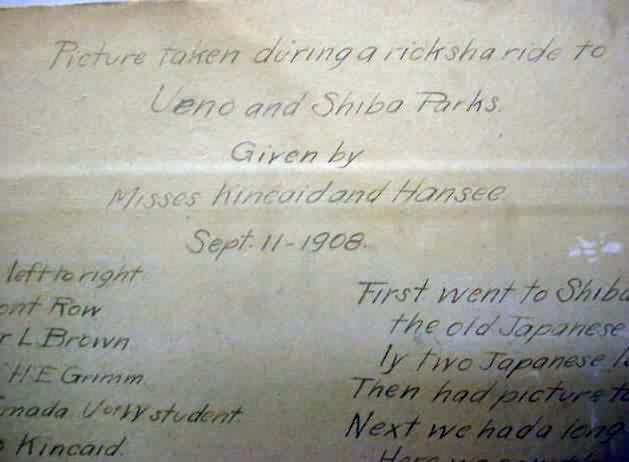 Picture taken during a ricksha ride to
Ueno and Shiba Parks.
Given by
Misses Kincaid and Hansee
Sept. 11-1908.
left to right
ont Row
r L Brown
H E Grimm
mada U of W student
Kincaid.
First went to Shiba
the old Japanese
ly two Japanese
Then had picture t
Next we had a long
Here we